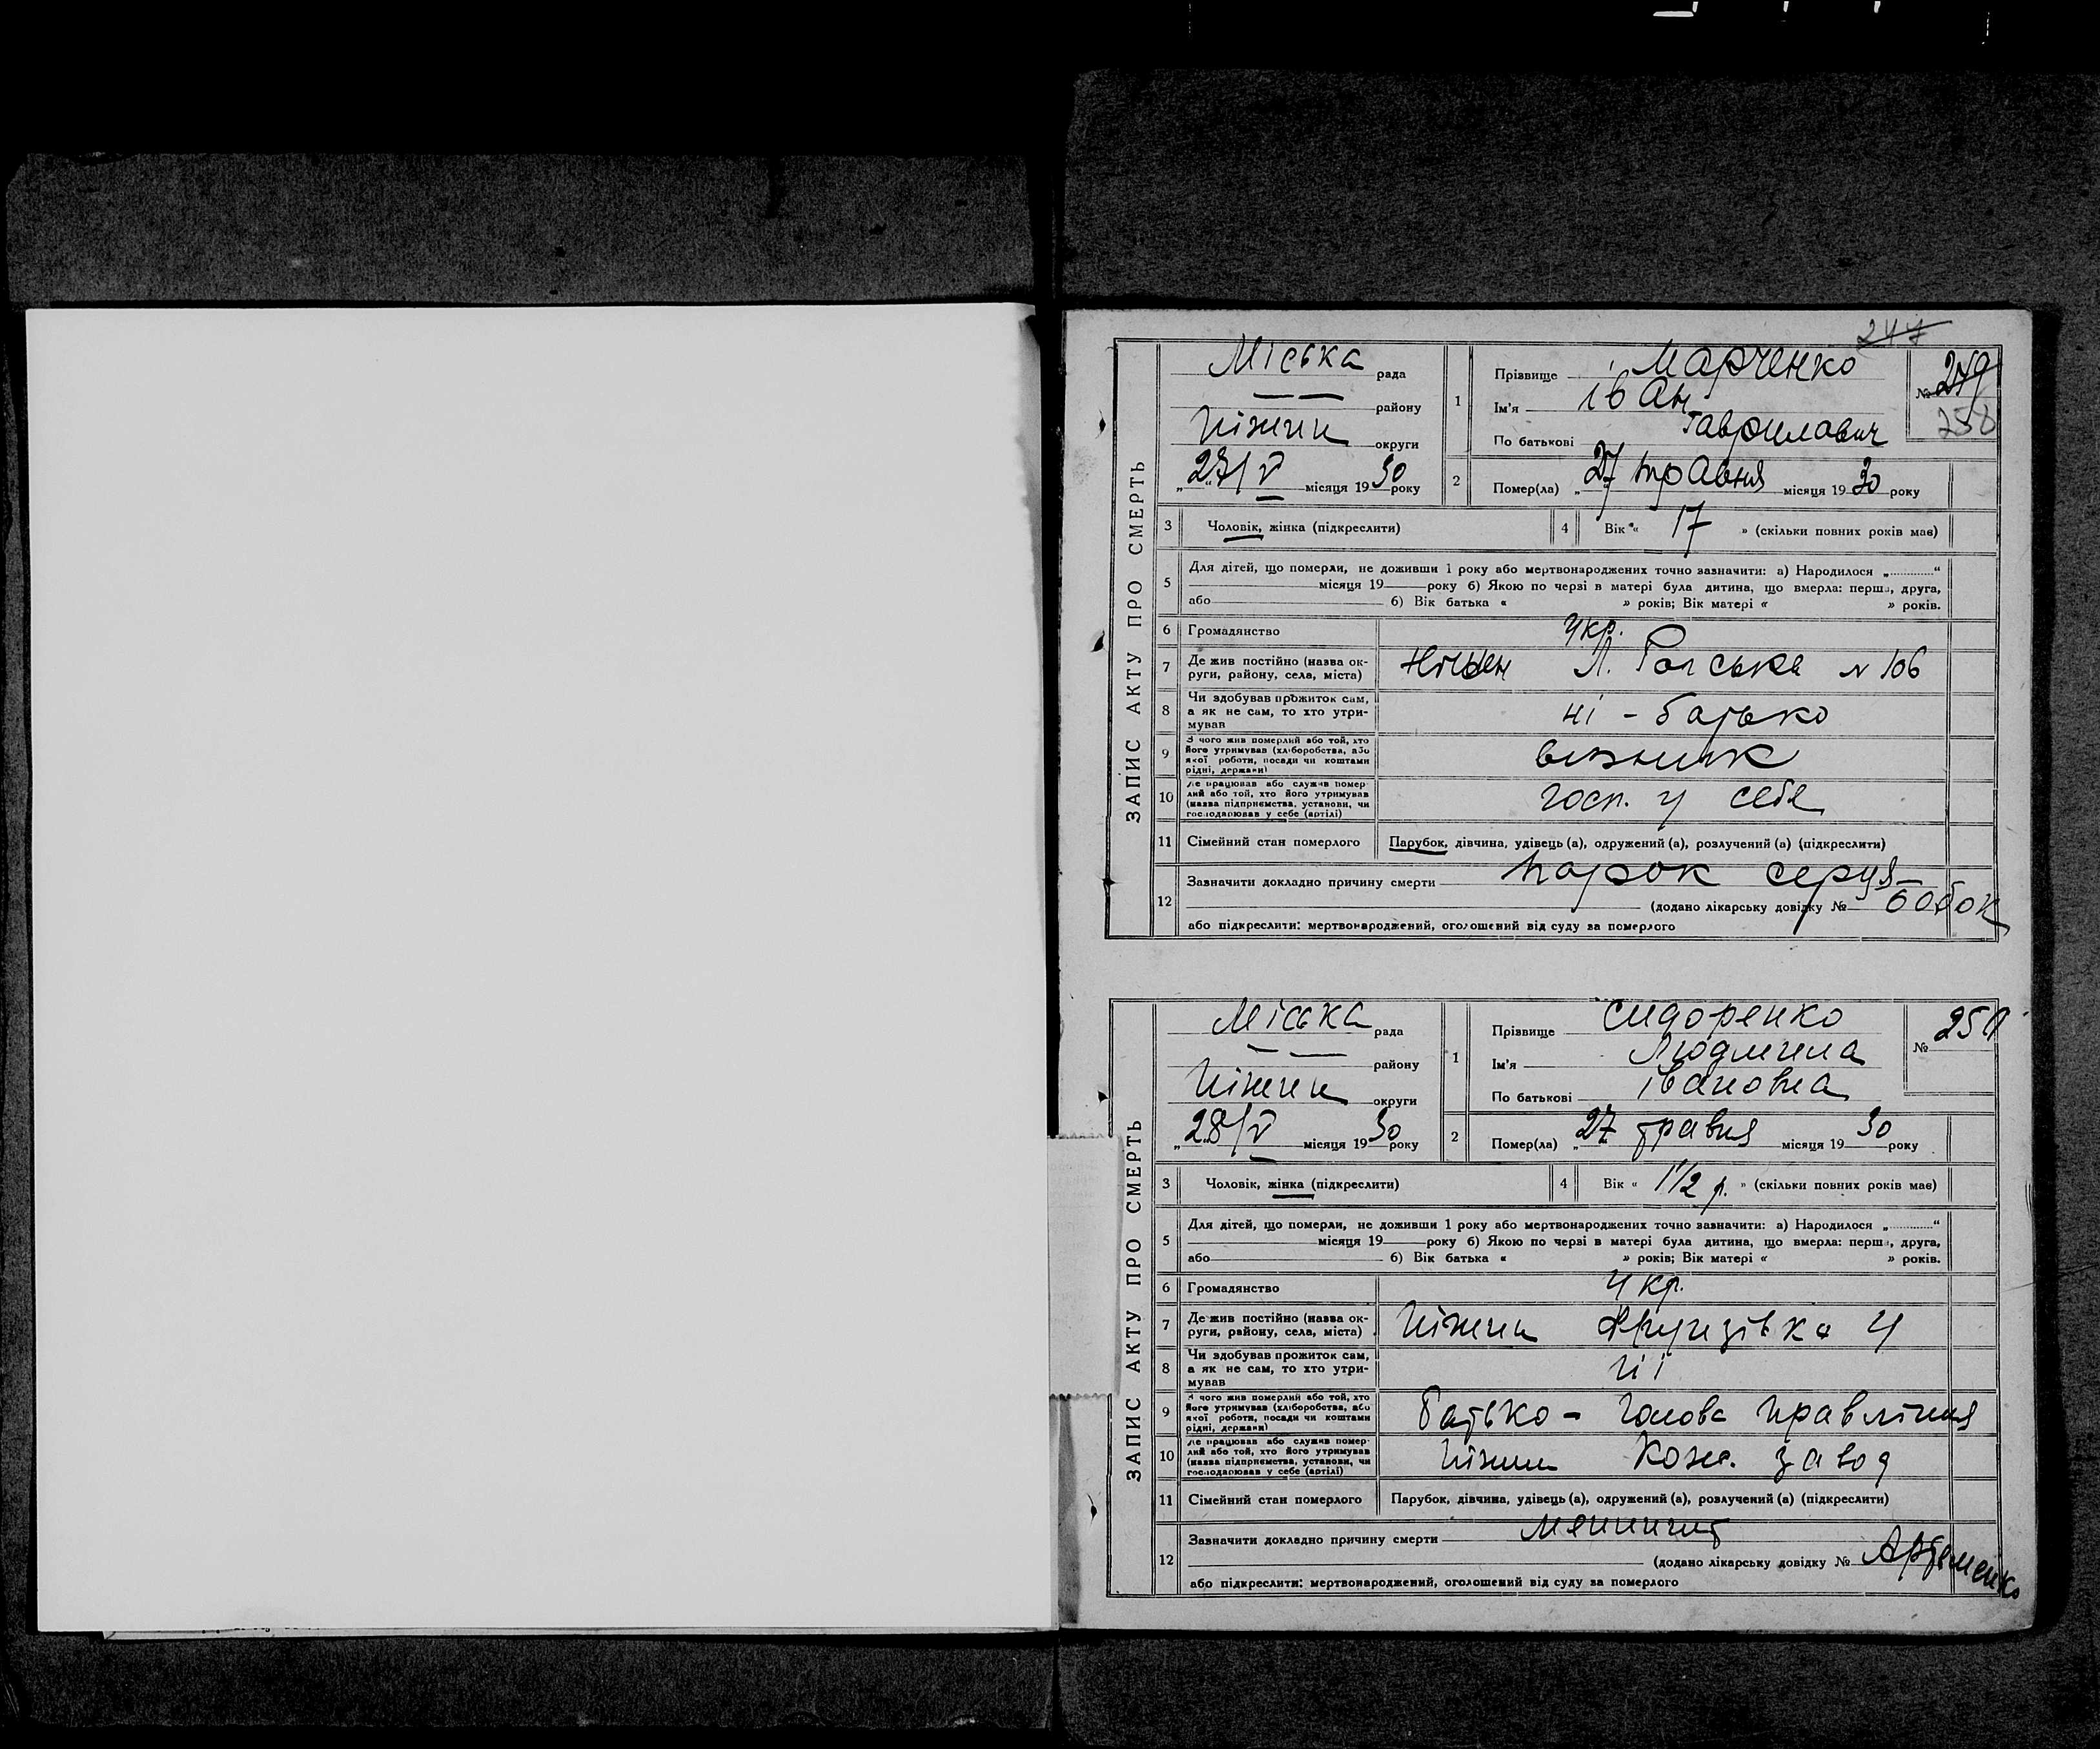 247
ЗАПИС АКТУ ПРО СМЕРТЬ
Міська рада
— — району
Ніжин округи
„27/V місяця 1930 року
1
Прізвище Марченко
Ім'я Іван
По батькові Гаврилович
№ 249
250
2 Помер(ла) „27 травня місяця 19 30 року
3 Чоловік, жінка (підкреслити)
4 Вік « 17 » (скільки повних років має)
5 Для дітей, що померли, не доживши 1 року або мертвонароджених точно зазначити: а) Народилося „............“
місяця 19 року б) Якою по черзі в матері була дитина, що вмерла: перша, друга,
або б) Вік батька « » років; Вік матері « » років.
6 Громадянство укр.
7 Де жив постійно (назва округи, району, села, міста) Ніжен Л. № 106
8 Чи здобував прожиток сам, а як не сам, то хто утримував ні - батько
9 З чого жив померлий або той, хто його утримував (хліборобства, або якої роботи, посади чи коштами рідні, держави) візник
10 Де працював або служив померлий або той, хто його утримував (назва підприємства, установи, чи господарював у себе (артілі) госп. у себе
11 Сімейний стан померлого Парубок, дівчина, удівець (а), одружений (а), розлучений (а) (підкреслити)
12 Зазначити докладно причину смерти порок серця
(додано лікарську довідку № Бобок
або підкреслити: мертвонароджений, оголошений від суду за померлого
ЗАПИС АКТУ ПРО СМЕРТЬ
Міська рада
— — району
Ніжин округи
„28/V місяця 1930 року
1
Прізвище Сидоренко
Ім'я Людмила
По батькові Івановна
№ 251
2 Помер(ла) „27 травня місяця 19 30 року
3 Чоловік, жінка (підкреслити)
4 Вік « 1 1/2 р. » (скільки повних років має)
5 Для дітей, що померли, не доживши 1 року або мертвонароджених точно зазначити: а) Народилося „............“
місяця 19 року б) Якою по черзі в матері була дитина, що вмерла: перша, друга,
або б) Вік батька « » років; Вік матері « » років.
6 Громадянство укр.
7 Де жив постійно (назва округи, району, села, міста) Ніжин Фрунзівка 4
8 Чи здобував прожиток сам, а як не сам, то хто утримував ні
9 З чого жив померлий або той, хто його утримував (хліборобства, або якої роботи, посади чи коштами рідні, держави) батько - голова правління
10 Де працював або служив померлий або той, хто його утримував (назва підприємства, установи, чи господарював у себе (артілі) Ніжин Кож. завод
11 Сімейний стан померлого Парубок, дівчина, удівець (а), одружений (а), розлучений (а) (підкреслити)
12 Зазначити докладно причину смерти менингит
(додано лікарську довідку № Артеменко
або підкреслити: мертвонароджений, оголошений від суду за померлого